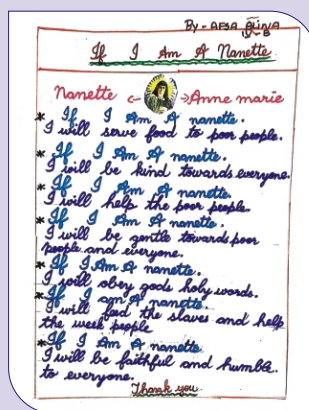 By - AFSA
If I Am A Nanette
Nanette Anne marie
* If I Am A nanette.
I will serve food to poor people.
* If I Am A nanette.
I will be kind towards everyone.
* If I Am A nanette.
I will help the poor people.
* If I Am A nanette.
I will be gentle towards poor
people and everyone.
* If I Am A nanette.
I will obey gods holy words.
* If I am A nanette
I will feed the slaves and help
the week people
* If I Am A nanette
I will be faithful and humble.
to everyone.
Thank you